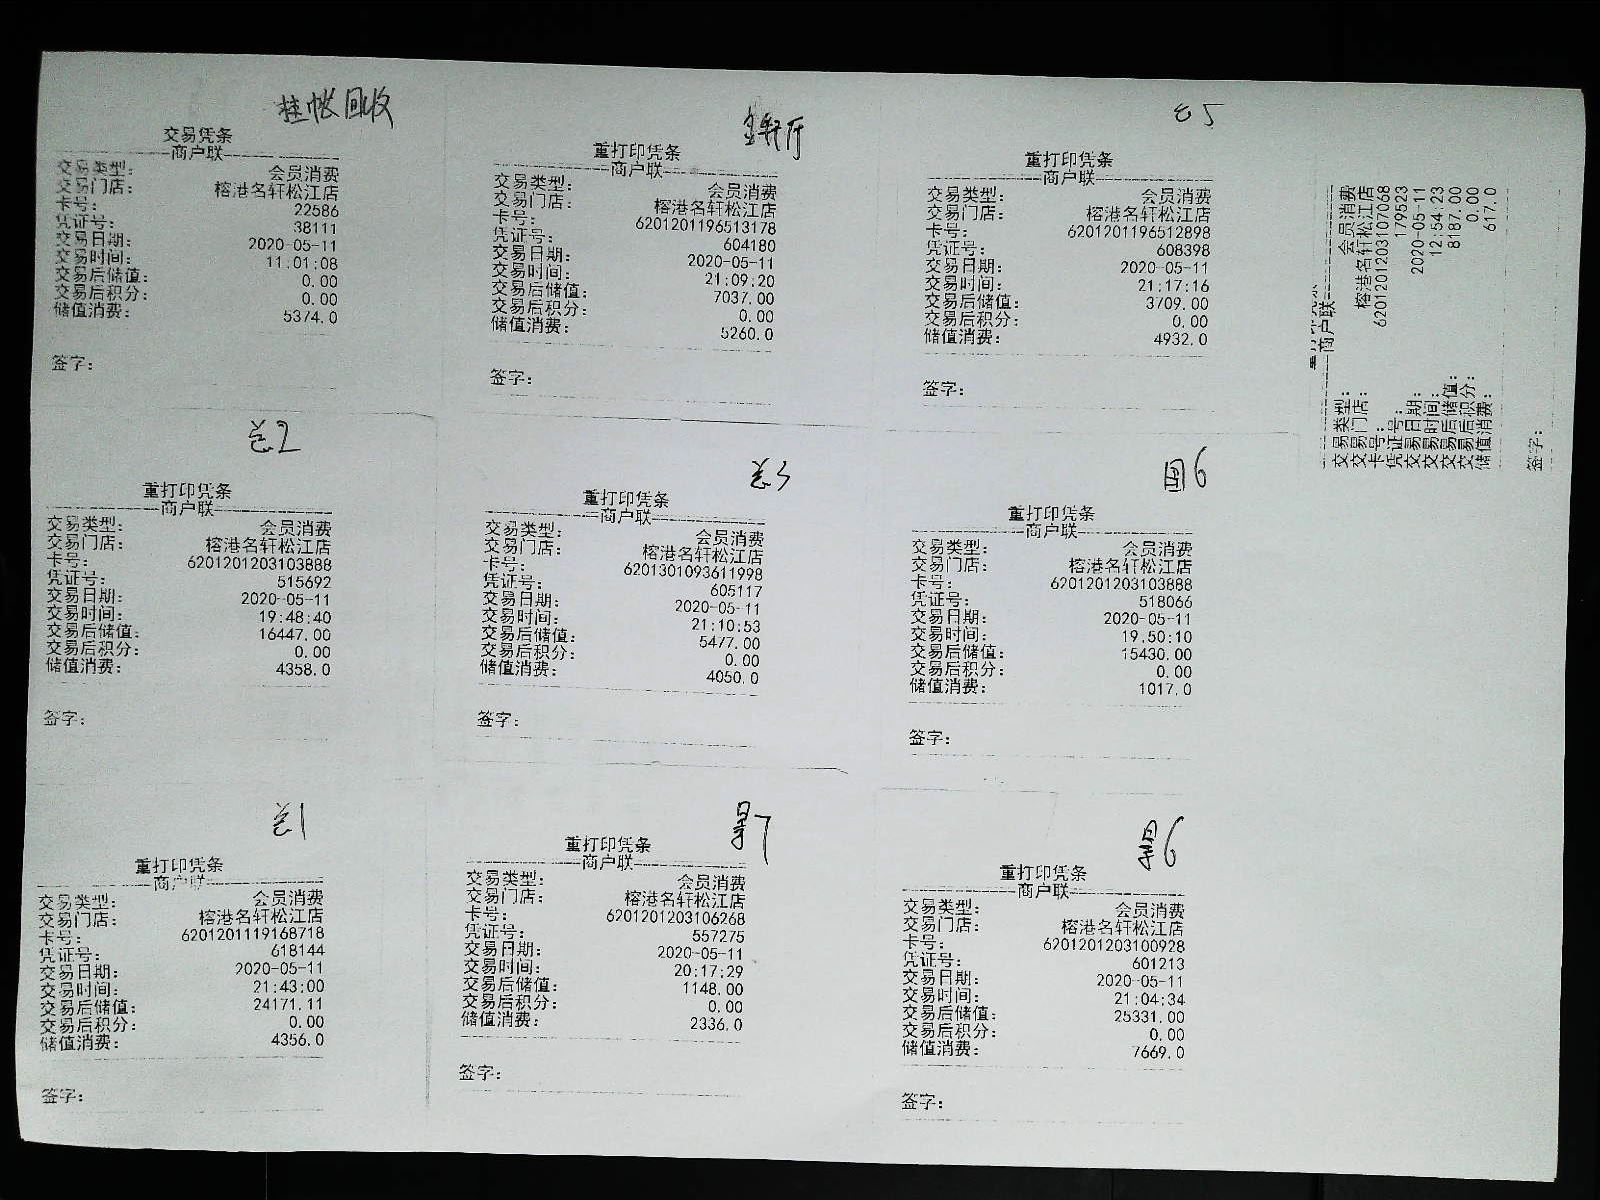 挂帐回收
交易凭条
商户联
交易类型： 会员消费
交易门店： 榕港名轩松江店
卡号： 22586
凭证号： 38111
交易日期： 2020-05-11
交易时间： 11:01:08
交易后储值： 0.00
交易后积分： 0.00
储值消费： 5374.0
签字：
重打印凭条
商户联
交易类型： 会员消费
交易门店： 榕港名轩松江店
卡号： 6201201196513178
凭证号： 604180
交易日期： 2020-05-11
交易时间： 21:09:20
交易后储值： 7037.00
交易后积分： 0.00
储值消费： 5260.0
签字：
重打印凭条
商户联
交易类型： 会员消费
交易门店： 榕港名轩松江店
卡号： 6201201196512898
凭证号： 608398
交易日期： 2020-05-11
交易时间： 21:17:16
交易后储值： 3709.00
交易后积分： 0.00
储值消费： 4932.0
签字：
商户联
交易类型： 会员消费
交易门店： 榕港名轩松江店
卡号： 6201201203107068
凭证号： 179523
交易日期： 2020-05-11
交易时间： 12:54:23
交易后储值： 8187.00
交易后积分： 0.00
储值消费： 617.0
签字：
重打印凭条
商户联
交易类型： 会员消费
交易门店： 榕港名轩松江店
卡号： 6201201203103888
凭证号： 515692
交易日期： 2020-05-11
交易时间： 19:48:40
交易后储值： 16447.00
交易后积分： 0.00
储值消费： 4358.0
签字：
重打印凭条
商户联
交易类型： 会员消费
交易门店： 榕港名轩松江店
卡号： 6201301093611998
凭证号： 605117
交易日期： 2020-05-11
交易时间： 21:10:53
交易后储值： 5477.00
交易后积分： 0.00
储值消费： 4050.0
签字：
重打印凭条
商户联
交易类型： 会员消费
交易门店： 榕港名轩松江店
卡号： 6201201203103888
凭证号： 518066
交易日期： 2020-05-11
交易时间： 19:50:10
交易后储值： 15430.00
交易后积分： 0.00
储值消费： 1017.0
签字：
重打印凭条
商户联
交易类型： 会员消费
交易门店： 榕港名轩松江店
卡号： 6201201119168718
凭证号： 618144
交易日期： 2020-05-11
交易时间： 21:43:00
交易后储值： 24171.11
交易后积分： 0.00
储值消费： 4356.0
签字：
重打印凭条
商户联
交易类型： 会员消费
交易门店： 榕港名轩松江店
卡号： 6201201203106268
凭证号： 557275
交易日期： 2020-05-11
交易时间： 20:17:29
交易后储值： 1148.00
交易后积分： 0.00
储值消费： 2336.0
签字：
重打印凭条
商户联
交易类型： 会员消费
交易门店： 榕港名轩松江店
卡号： 6201201203100928
凭证号： 601213
交易日期： 2020-05-11
交易时间： 21:04:34
交易后储值： 25331.00
交易后积分： 0.00
储值消费： 7669.0
签字：